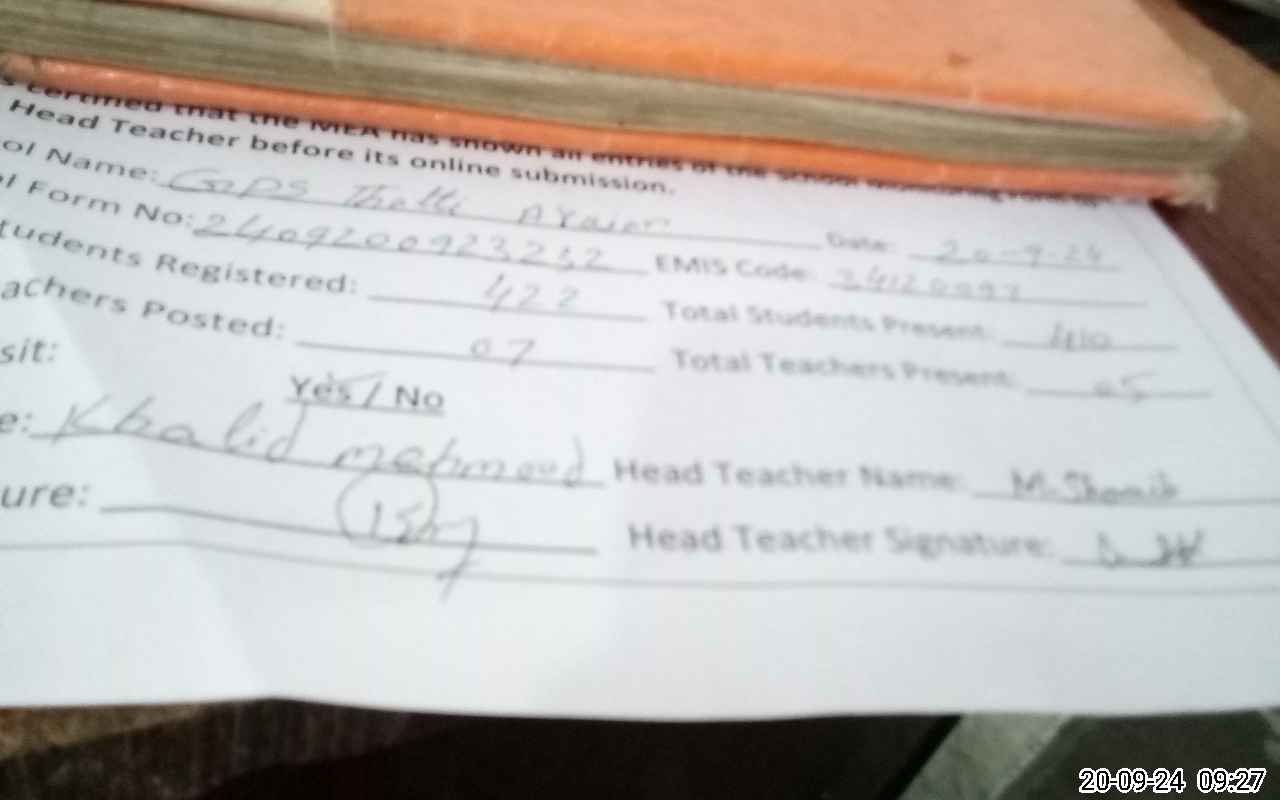 certified that the MEA has shown all entries of the school
Head Teacher before its online submission.
ol Name: GPS Thatti Araian Date: 20-9-24
l Form No: 2409200923232 EMIS Code:
tudents Registered: 422 Total Students Present: 410
achers Posted: 07 Total Teachers Present: 05
sit: Yes / No
e: Khalid mehmood Head Teacher Name: M. Shoaib
ure: Head Teacher Signature:
20-09-24 09:27